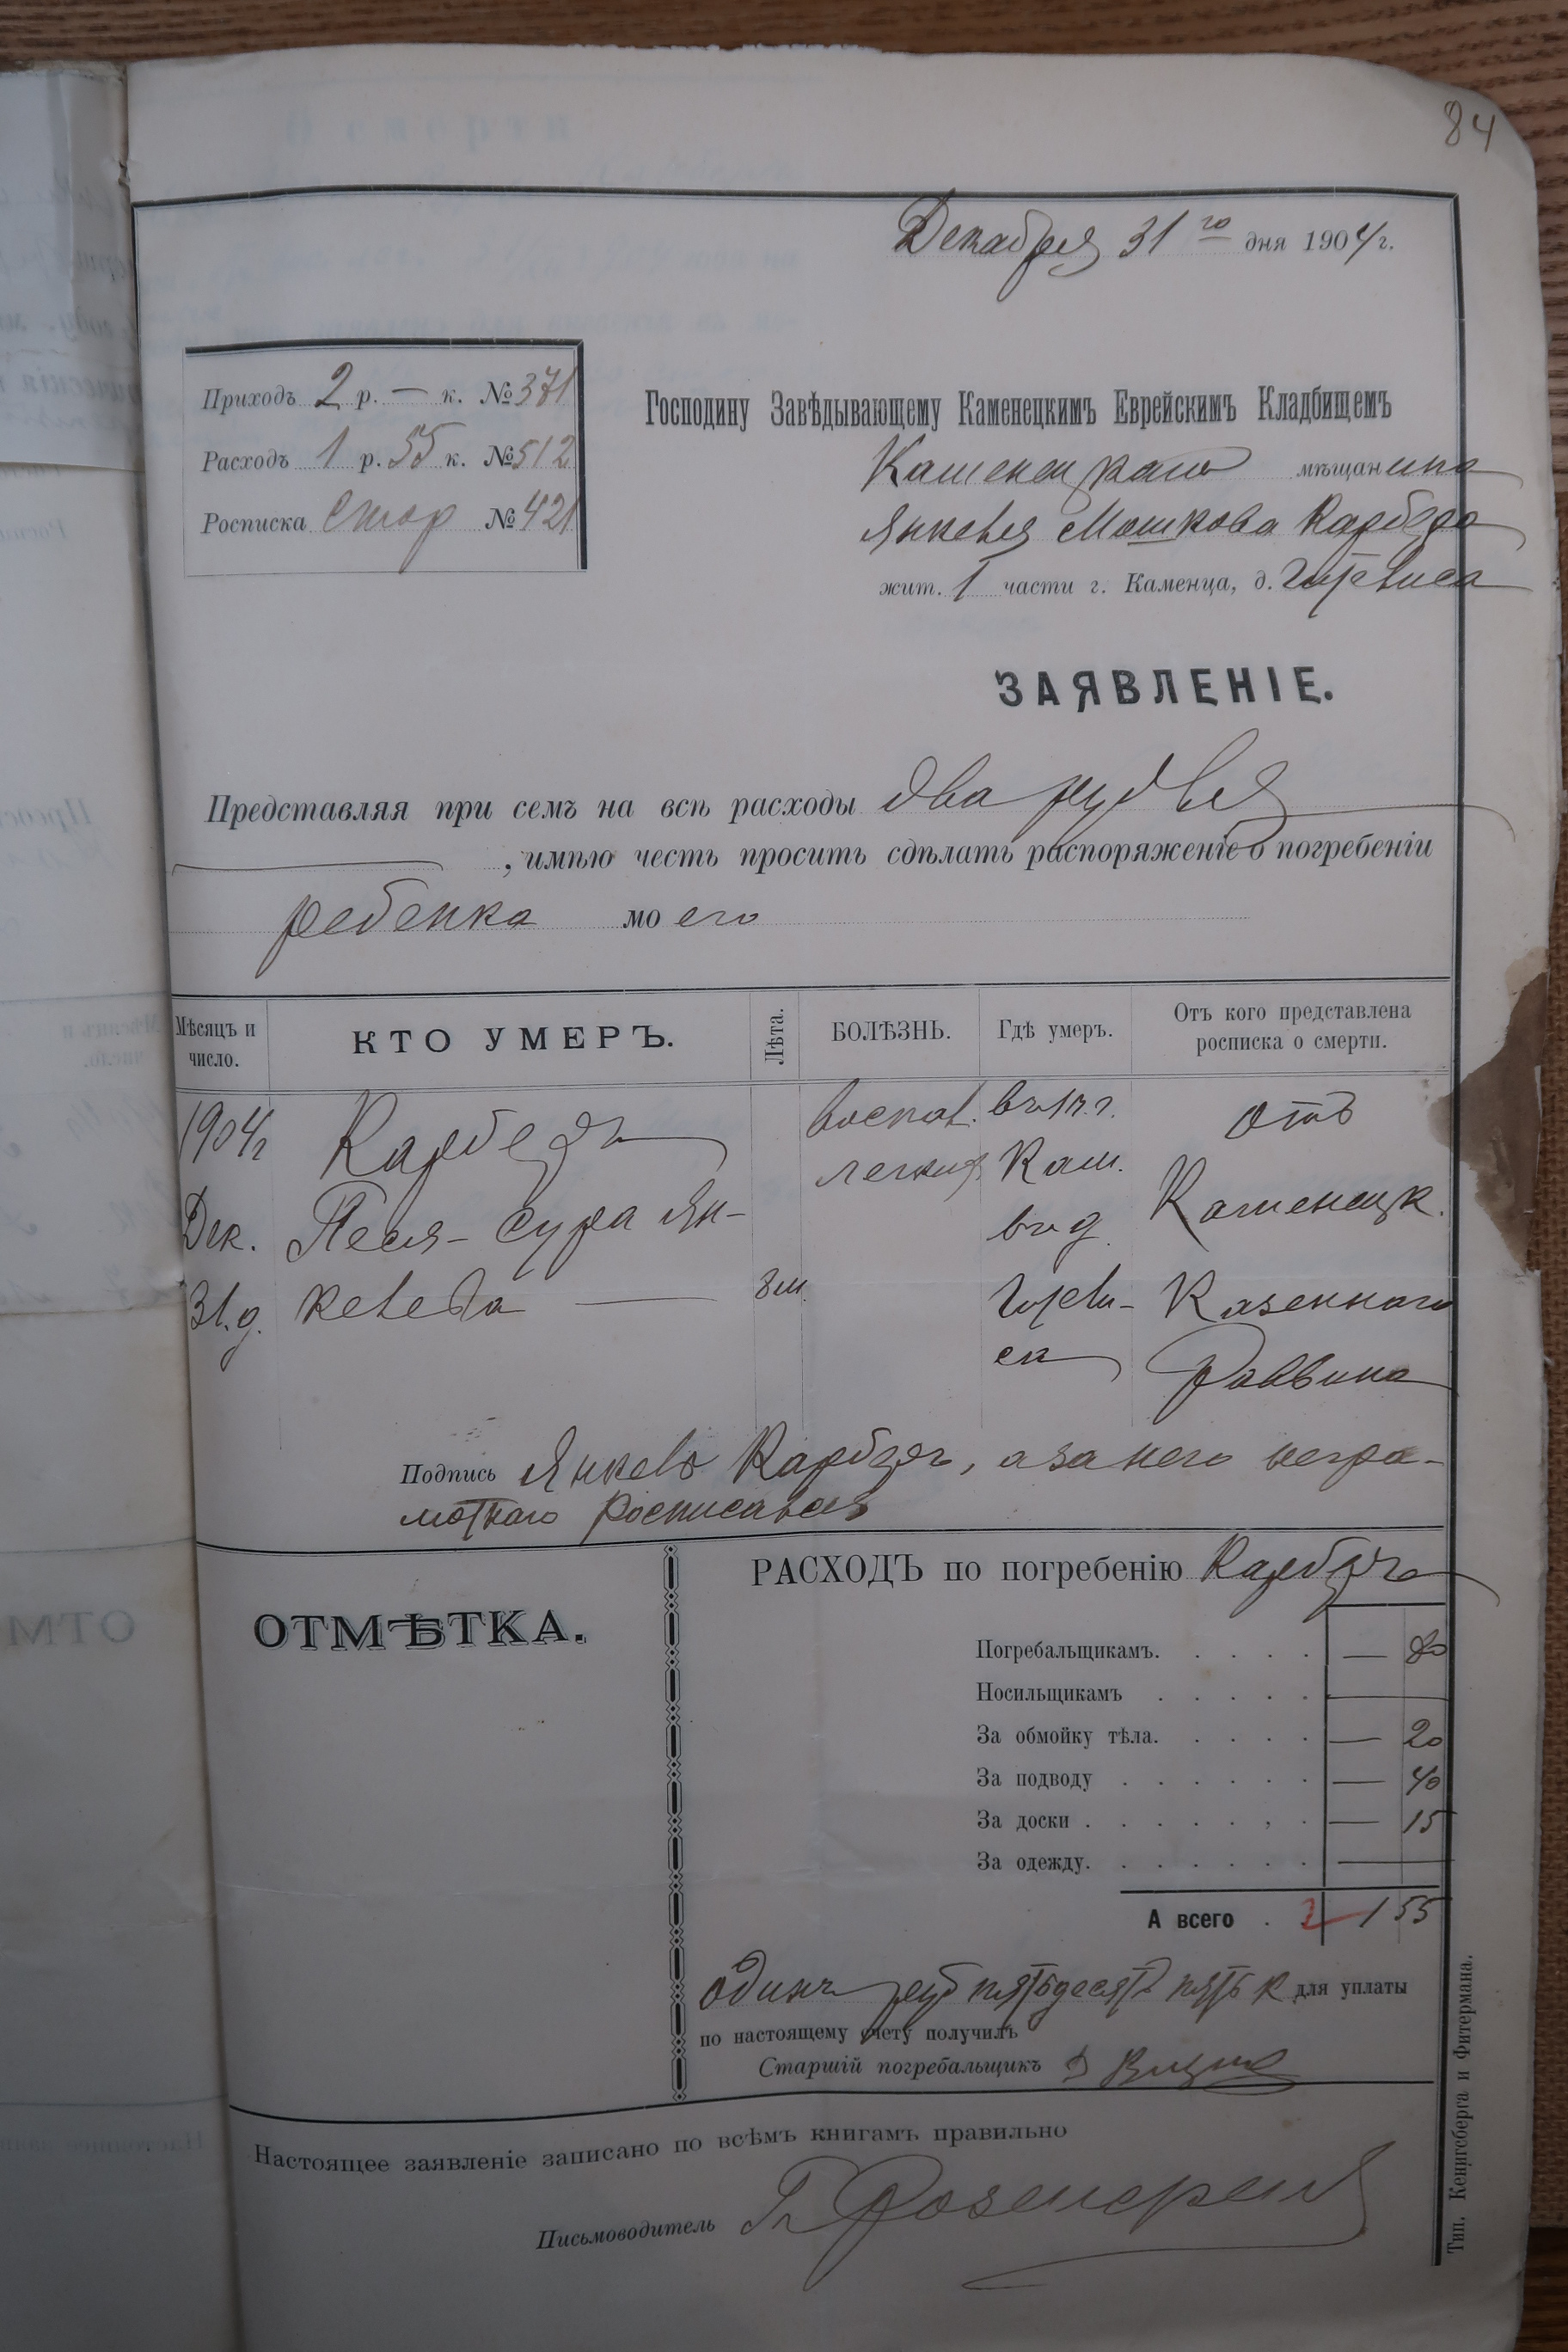 84
Декабря 31 го дня 1904 г.
Приходъ 2 р. — к. № 371
Расходъ 1 р. 55 к. № 512
Росписка стор № 421
Господину Завѣдывающему Каменецкимъ Еврейскимъ Кладбищемъ
Каменецкаго мѣщанина
Янкеля Мошкова Карбера
жит. 1 части г. Каменца, д. Гурвиса
ЗАЯВЛЕНІЕ.
Представляя при семъ на всѣ расходы два рубля
, имѣю честь просить сдѣлать распоряженіе о погребеніи
ребенка моего
Мѣсяцъ и число.
КТО УМЕРЪ.
Лѣта.
БОЛѢЗНЬ.
Гдѣ умеръ.
Отъ кого представлена росписка о смерти.
1904 г
Дек.
31. д.
Карберъ
Песя-Сура Ян-
келева —
8 м.
воспал.
легкихъ
въ 1 ч. г.
Кам.
въ д.
отъ
Каменецк.
Казеннаго
Раввина
Подпись Янкель Карберъ, а за него негра-
мотнаго росписался
ОТМѢТКА.
РАСХОДЪ по погребенію Карберъ
Погребальщикамъ. — 80
Носильщикамъ —
За обмойку тѣла. — 20
За подводу — 40
За доски — 15
За одежду. —
А всего 1 55
Одинъ руб пятьдесятъ пять к для уплаты
по настоящему счету получилъ
Старшій погребальщикъ
Настоящее заявленіе записано по всѣмъ книгамъ правильно
Письмоводитель
Тип. Кенигсберга и Фитермана.